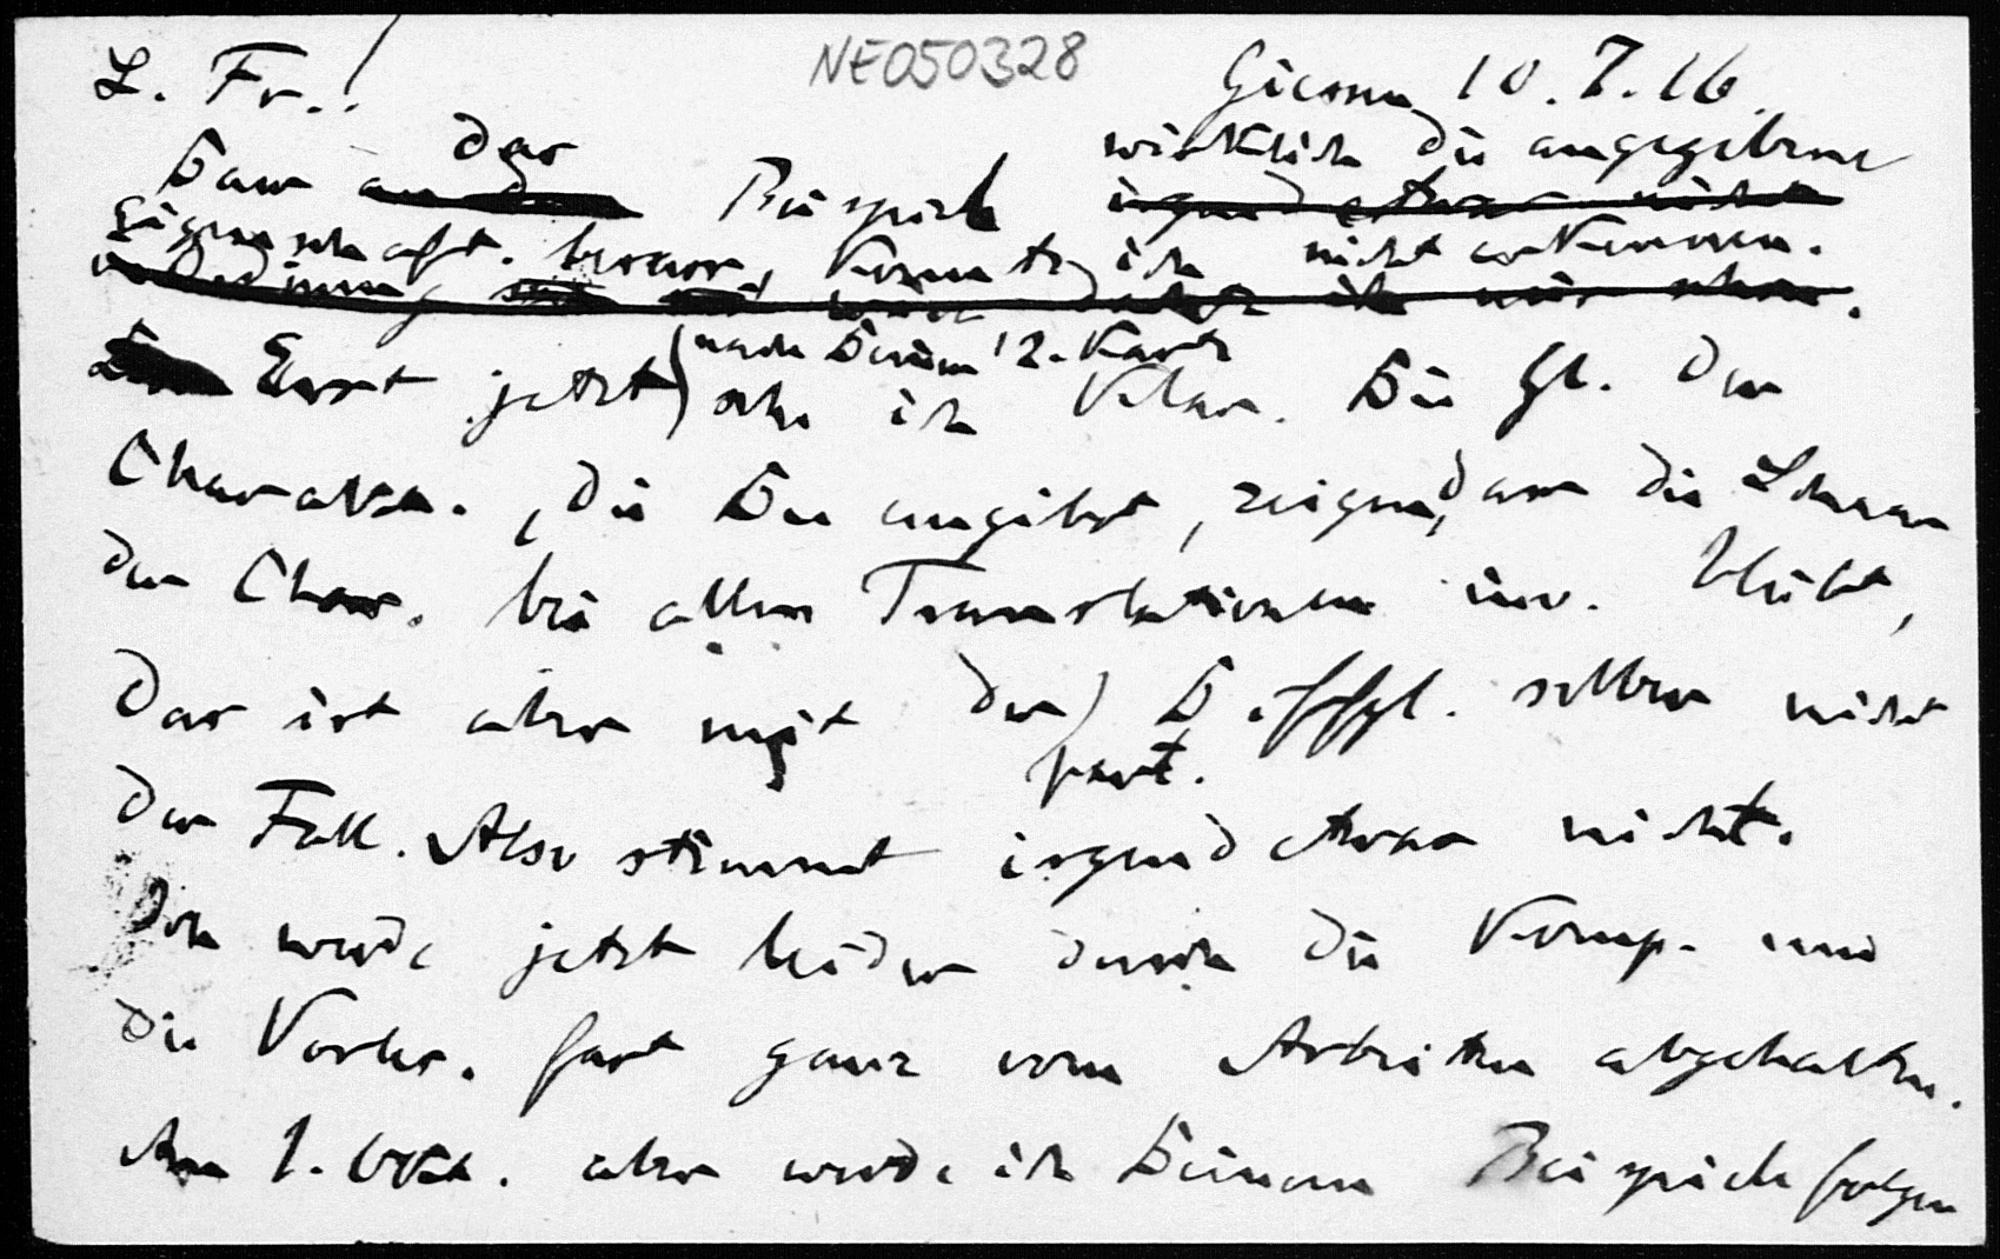 NE050328
L. Fr.! Giessen 10. 7. 16.
Dass das Beispiel wirklich die angegebene
Eigenschaft besass, konnte ich nicht erkennen.
Erst jetzt (nach Deiner 2. Karte) sehe ich klar. Die Gl. der
Charakt., die Du angibst, zeigen, dass die Schaar
der Char. bei allen Translationen inv. bleibt,
das ist aber mit der part. Diffgl. selber nicht
der Fall. Also stimmt irgend etwas nicht.
Ich werde jetzt leider durch die Komp. und
die Vorles. fast ganz vom Arbeiten abgehalten.
Am 1. Okt. aber werde ich Deinem Beispiele folgen